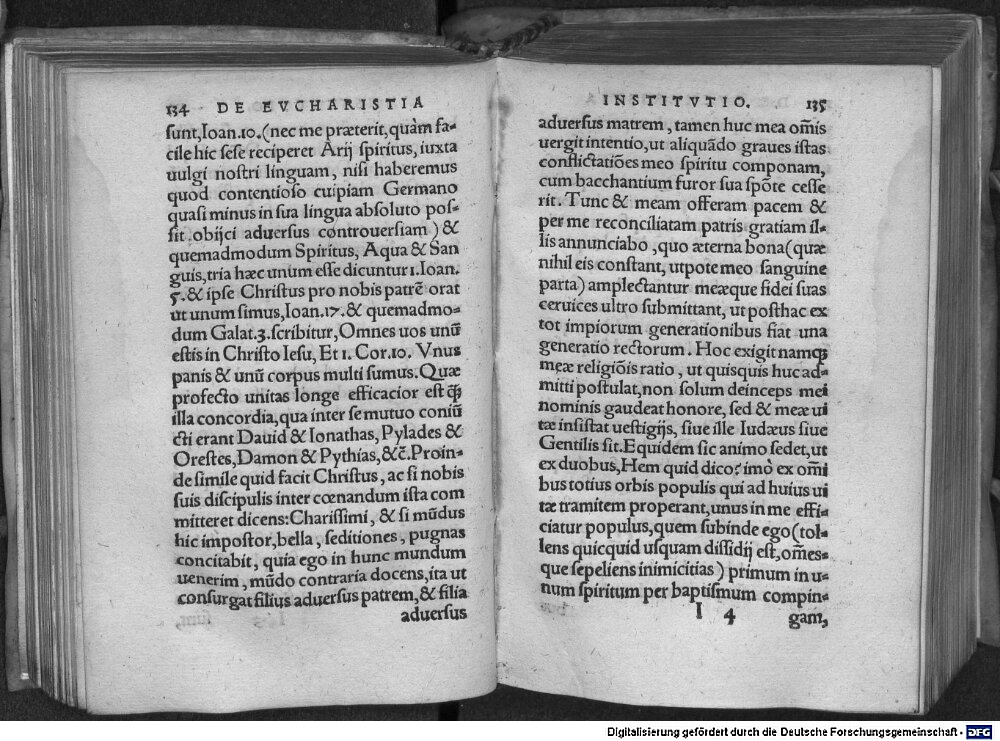 134 DE EVCHARISTIA
sunt,Ioan.10.(nec me præterit,quàm fa-
cile hic sese reciperet Arij spiritus, iuxta
uulgi nostri linguam, nisi haberemus
quod contentioso cuipiam Germano
quasi minus in sua lingua absoluto pos-
sit obijci aduersus controuersiam) &
quemadmodum Spiritus, Aqua & San
guis,tria hæc unum esse dicuntur 1. Ioan.
5. & ipse Christus pro nobis patrē orat
ut unum simus,Ioan.17. & quemadmo-
dum Galat.3.scribitur,Omnes uos unū
estis in Christo Iesu, Et 1. Cor.10. Vnus
panis & unū corpus multi sumus. Quæ
profecto unitas longe efficacior est q̃;
illa concordia,qua inter se mutuo coniū
cti erant Dauid & Ionathas, Pylades &
Orestes, Damon & Pythias, &c̃. Proin-
de simile quid facit Christus, ac si nobis
suis discipulis inter cœnandum ista com
mitteret dicens: Charissimi, & si mūdus
hic impostor,bella, seditiones, pugnas
concitabit, quia ego in hunc mundum
uenerim, mūdo contraria docens,ita ut
consurgat filius aduersus patrem,& filia
aduersus
INSTITVTIO. 135
aduersus matrem, tamen huc mea om̃is
uergit intentio,ut aliquādo graues istas
conflictatiōes meo spiritu componam,
cum bacchantium furor sua spōte cesse
rit. Tunc & meam offeram pacem &
per me reconciliatam patris gratiam il-
lis annunciabo, quo æterna bona (quæ
nihil eis constant, utpote meo sanguine
parta) amplectantur meæque fidei suas
ceruices ultro submittant, ut posthac ex
tot impiorum generationibus fiat una
generatio rectorum. Hoc exigit namq;
meæ religiōis ratio, ut quisquis huc ad-
mitti postulat,non solum deinceps mei
nominis gaudeat honore, sed & meæ ui
tæ insistat uestigijs, siue ille Iudæus siue
Gentilis sit. Equidem sic animo sedet,ut
ex duobus, Hem quid dico? imò ex om̃i
bus totius orbis populis qui ad huius ui
tæ tramitem properant,unus in me effi-
ciatur populus,quem subinde ego (tol-
lens quicquid usquam dissidij est,om̃es-
que sepeliens inimicitias) primum in u-
num spiritum per baptismum compin-
I 4 gam,
Digitalisierung gefördert durch die Deutsche Forschungsgemeinschaft - DFG